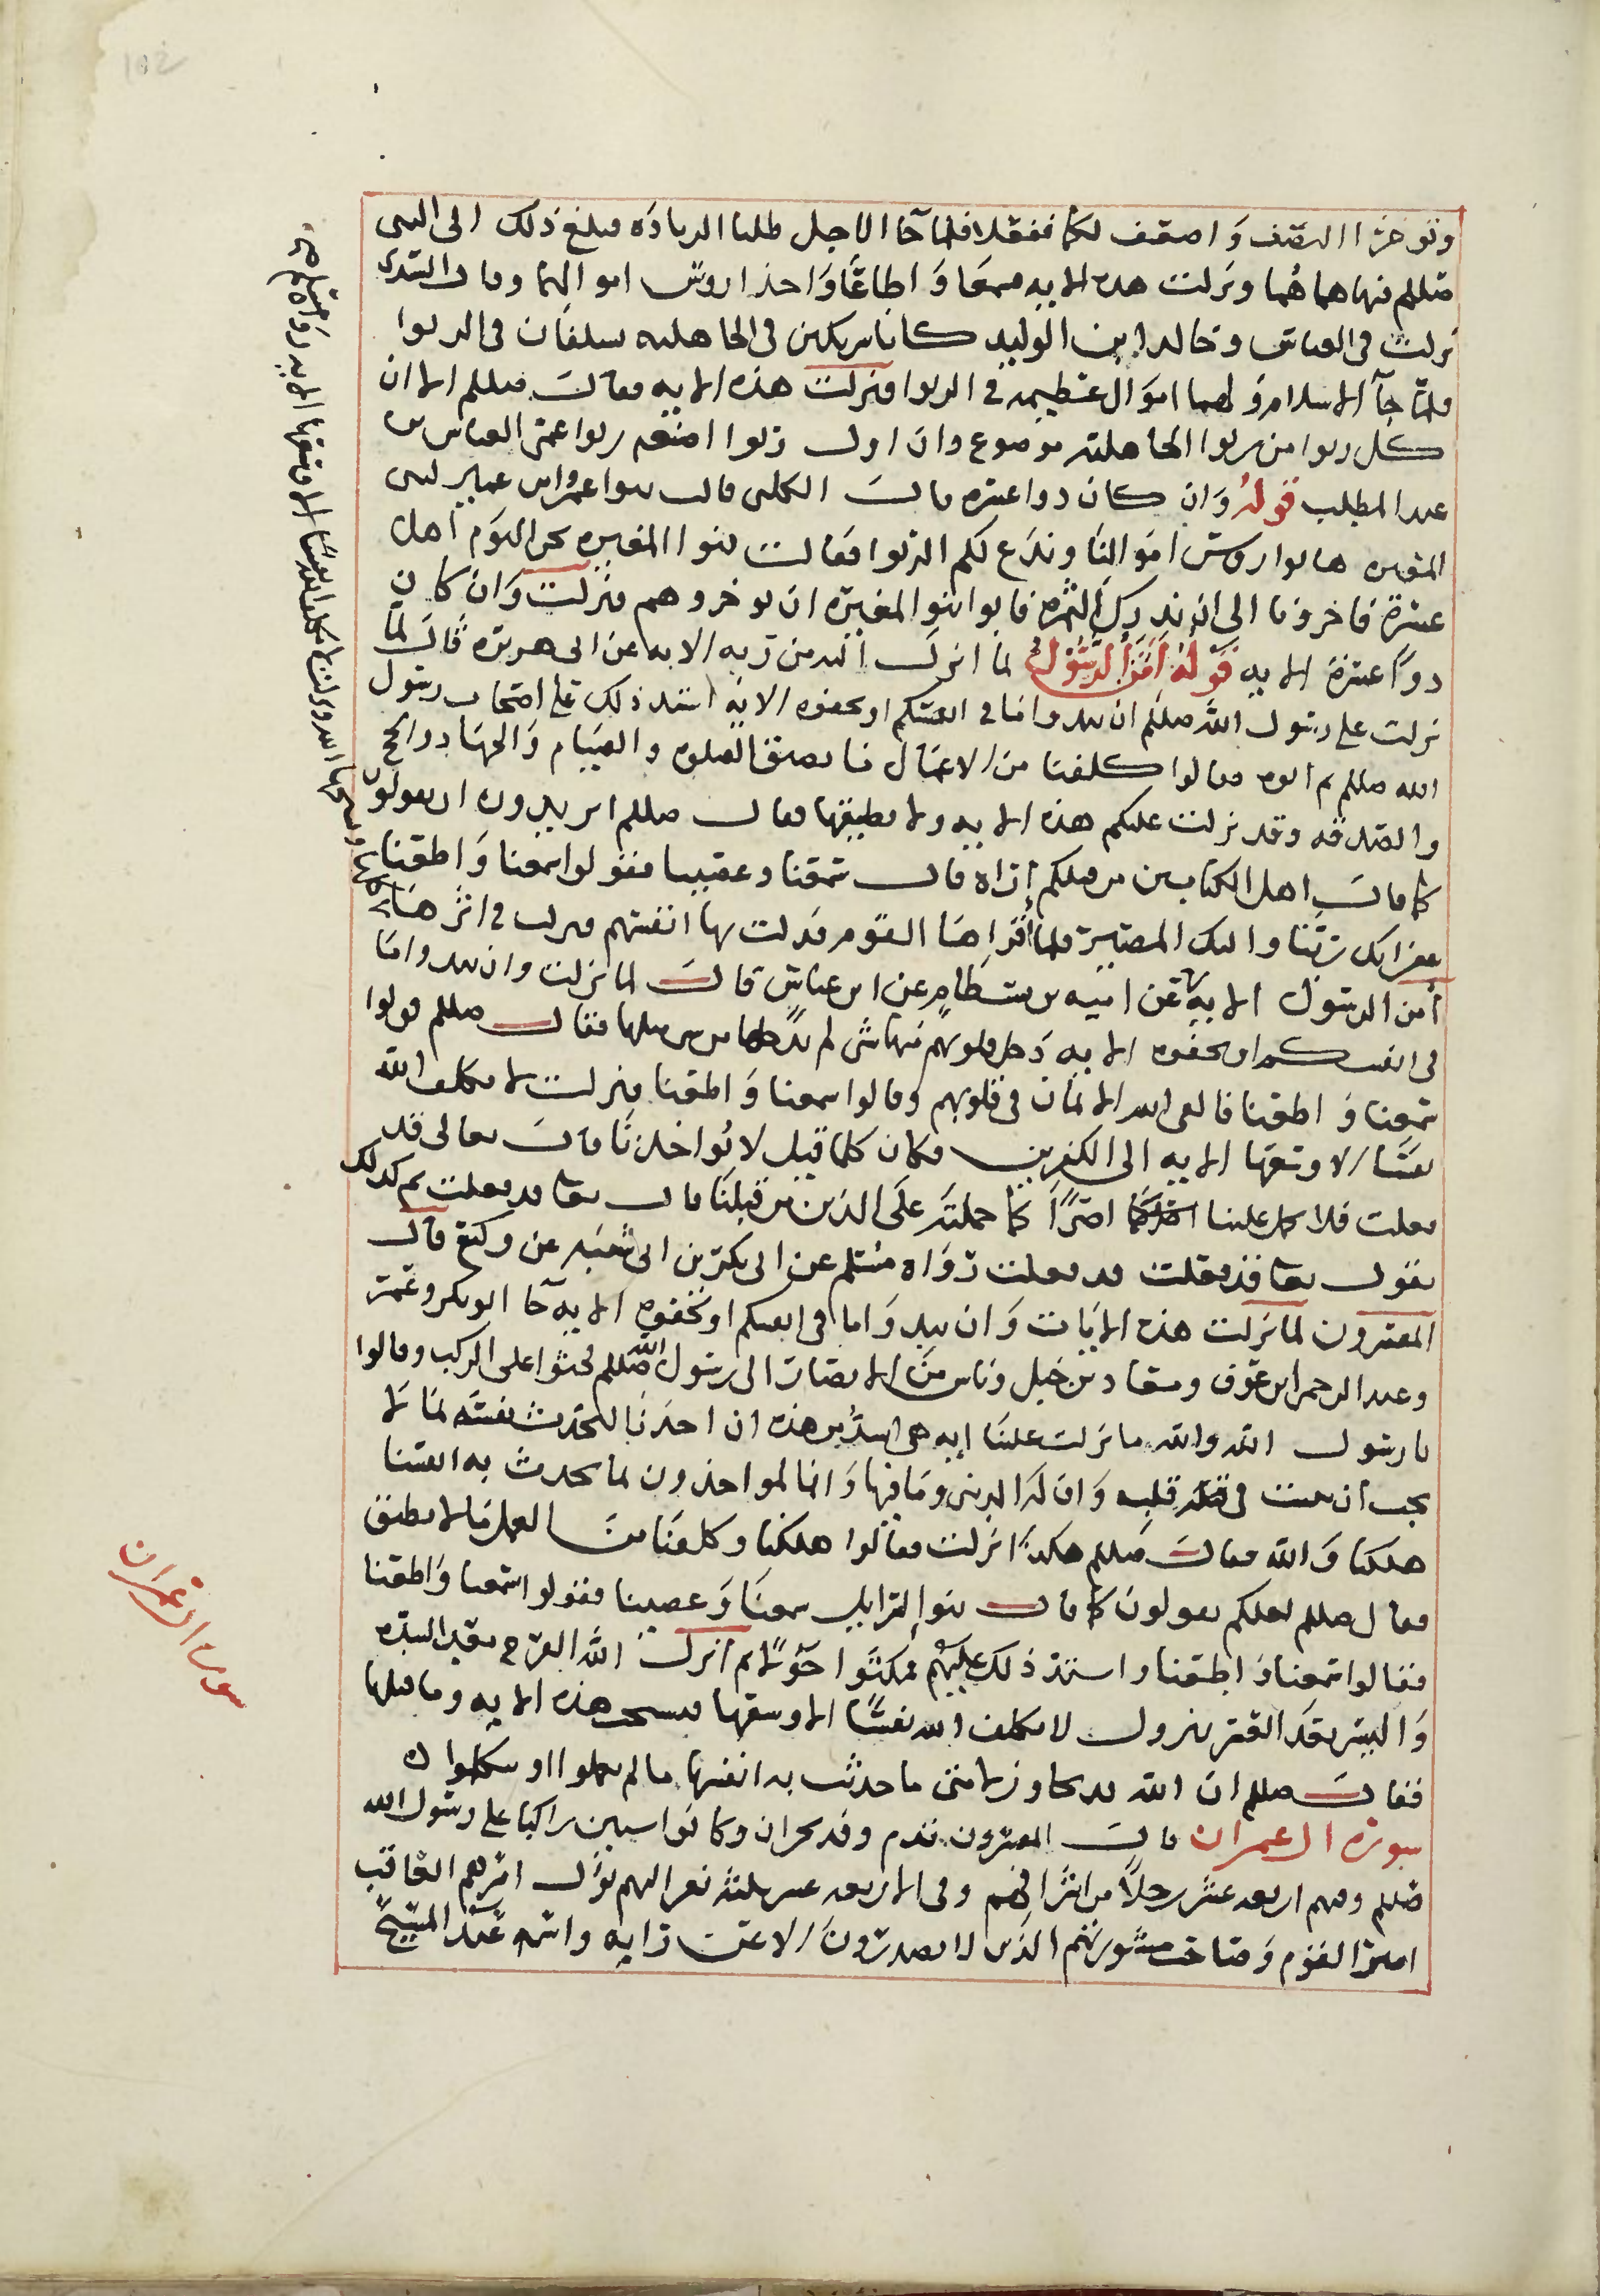 وتوخرا النصف واضعف لكما ففعلا فلما جا الاجل طلبا الزيادة فبلغ ذلك الى النبى
صللم فنهاهما هما ونزلت هذه الايه فسمعا واطاعا واخذا روس اموالهما وقال السدى
نزلت فى العباس وخالد ابن الوليد كانا شريكين فى الجاهليه يسلفان فى الربوا
فلما جآ الاسلام ولهما اموال عظيمه فى الربوا فنزلت هذه الايه فقال صللم الا ان
كل ربوا من ربوا الجاهليه موضوع وان اول ربوا اضعه ربوا عمى العباس بن
عبد المطلب قوله وان كان ذوا عسره قال الكلبى قالت بنوا عمرو ابن عمير لبنى
المغيره هاتوا روس اموالنا وندع لكم الربوا فقالت بنوا المغيره نحن اليوم اهل
عسرة فاخرونا الى ان تدرك الثمره فابوا بنوا المغيره ان يوخروهم فنزلت وان كان
ذوا عسرة الايه قوله آمن الرسول لما انزل اليه من ربه الايه عن ابى هريره قال لما
نزلت على رسول الله صللم ان تبدوا ما فى انفسكم او تخفوه الايه اشتد ذلك على اصحاب رسول
الله صللم ثم اتوه فقالوا كلفنا من الاعمال ما نطيق الصلوه والصيام والجهاد والحج
والصدقه وقد نزلت عليكم هذه الايه ولا نطيقها فقال صللم اتريدون ان تقولون
كما قال اهل الكتابين من قبلكم اراه قال سمعنا وعصينا فقولوا سمعنا واطعنا
غفرانك ربنا واليك المصير فلما اقراها القوم فذلت بها انفسهم فنزلت فى اثرها
آمن الرسول الايه عن اميه بن بسطام عن ابن عباس قال لما نزلت وان تبدوا ما
فى انفسكم او تخفوه الايه دخل قلوبهم منها شى لم يدخلها من شى مثلها فقال صللم قولوا
سمعنا واطعنا فالقى الله الايمان فى قلوبهم وقالوا سمعنا واطعنا فنزلت لا يكلف الله
نفسا الا وسعها الايه الى الكفرين فكان كلما قيل لا تواخذنا قال تعالى قد
فعلت فلا تحمل علينا اصرا كما حملته على الذين من قبلنا قال تعا قد فعلت ثم كذلك
يقول تعا قد فعلت قد فعلت رواه مسلم عن ابى بكر بن ابى شيبه عن وكيع قال
المفسرون لما نزلت هذه الايات وان تبدوا ما فى انفسكم او تخفوه الايه جا ابو بكر وعمر
وعبد الرحمن ابن عوف ومعاد بن جبل وناس من الانصار الى رسول الله صللم فجثوا على الركب وقالوا
يا رسول الله والله ما نزلت علينا ايه هى اشد من هذه ان احدنا ليحدث نفسه بما لا
يحب ان يثبت فى قلبه وان له الدنيا وما فيها وانا لمواخذون بما نحدث به انفسنا
هلكنا والله فقال صللم هكذا انزلت فقالوا هلكنا وكلفنا من العمل ما لا نطيق
فقال صللم لعلكم تقولون كما قال بنوا اسرايل سمعنا وعصينا فقولوا سمعنا واطعنا
فقالوا سمعنا واطعنا واشتد ذلك عليهم فمكثوا حولا ثم انزل الله الفرج بعد الشده
واليسر بعد العسر بنزول لا يكلف الله نفسا الا وسعها فنسخت هذه الايه وما قبلها
فقال صللم ان الله قد تجاوز لامتى ما حدثت به انفسها ما لم يعملوا او يتكلموا به
سورة ال عمران قال المفسرون قدم وفد نجران وكانوا ستين راكبا على رسول الله
صللم وفيهم اربعه عشر رجلا من اشرافهم وفى الاربعه عشر ثلثه نفر اليهم يؤل امرهم العاقب
امير القوم وصاحب مشورتهم الذى لا يصدرون الا عن رايه واسمه عبد المسيح
سورة ال عمران